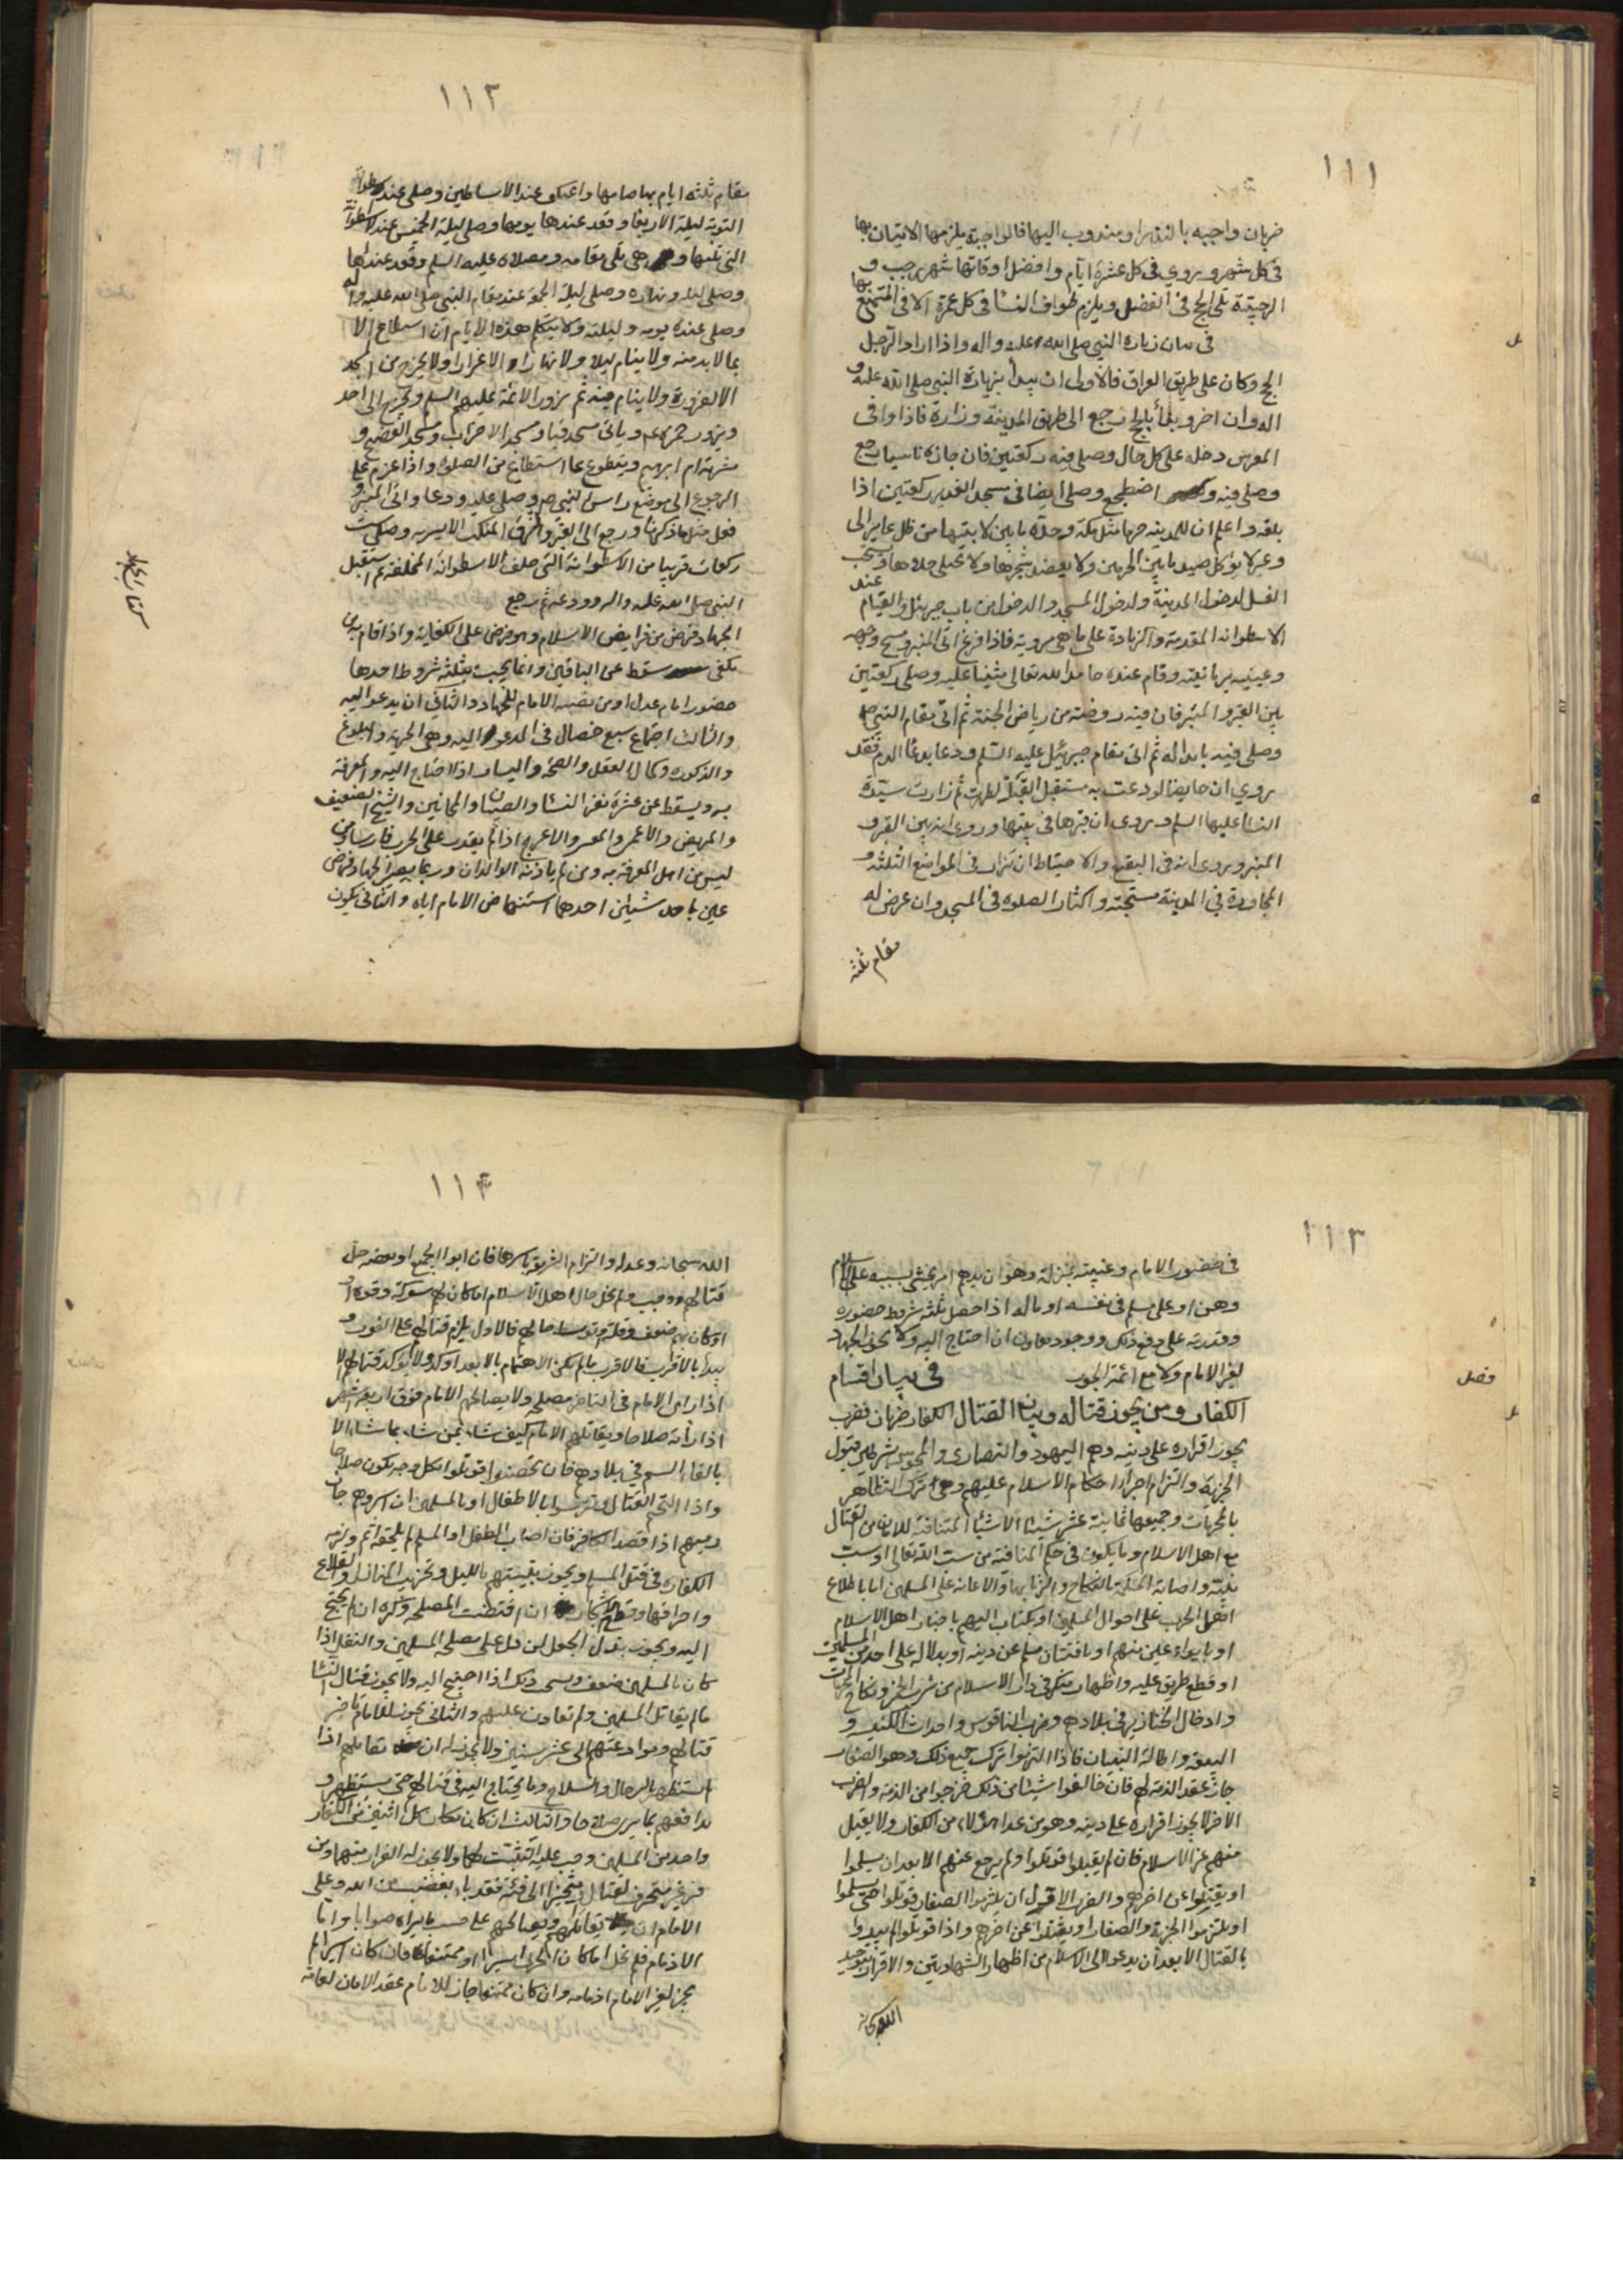 ١١١
ضربان واجبه بالنذر او مندوب اليها فالواجبة يلزمها الاتيان بها
فى كل شهر وروي فى كل عشرة ايام وافضل اوقاتها شهر رجب و
الرجبية تلى الحج فى الفضل ويلزم طواف النسا فى كل عمرة الا فى المتمتع بها
فى بيان زيارة النبي صلى الله عليه واله واذا اراد الرجل
الحج وكان على طريق العراق فالاولى ان يبدأ بزيارة النبي صلى الله عليه و
اله وان اخر وبدأ بالحج رجع الى طريق المدينة وزاره فاذا وافى
المعرس دخله على كل حال وصلى فيه ركعتين فان جازه ناسيا رجع
وصلى فيه و اضطجع وصلى ايضا فى مسجد الغدير ركعتين اذا
بلغه واعلم ان للمدينه حرما مثل مكة وحده ما بين لابتيها من ظل عاير الى
وعير لا يؤكل صيد ما بين الحرمين ولا يعضد شجرها ولا يختلى خلاها ويستحب
الغسل لدخول المدينة ولدخول المسجد والدخول من باب جبرئيل والقيام عند
الاسطوانه المقدمة والزيادة على ما هى مروية فاذا فرغ اتى المنبر ومسح وجهه
وعينيه برمانيته وقام عنده حامدا لله تعالى مثنيا عليه وصلى ركعتين
بين القبر والمنبر فان فيه روضة من رياض الجنة ثم اتى مقام النبي ص
وصلى فيه ما بدا له ثم اتى مقام جبرئيل عليه السلم ودعا بدعا الدم فقد
روي ان حايضا لو دعت به مستقبل القبلة لطهرت ثم زارت سيدة
النسا عليها السلم وروى ان قبرها فى بيتها وروى انه بين القبر و
المنبر وروى انه فى البقيع والاحتياط ان تزار فى المواضع الثلثة و
المجاورة فى المدينة مستحبة واكثار الصلوه فى المسجد وان عرض له
مقام ثلثة
١١٢
مقام ثلثه ايام بها صامها واعتكف عند الاساطين وصلى عند اسطوانة
التوبة ليلة الاربعا وقعد عندها يومها وصلى ليلة الخميس عند الاسطوانة
التى تليها و هى تلى مقامه ومصلاه عليه السلم وقعد عندها
وصلى ليله ونهاره وصلى ليلة الجمعة عند مقام النبي صلى الله عليه واله
وصلى عنده يومه وليلته ولا يتكلم هذه الايام ان استطاع الا
بما لا بد منه ولا ينام ليلا ولا نهارا الا غرارا ولا يخرج من المسجد
الا لضرورة ولا ينام فيه ثم يزور الائمة عليهم السلم ويخرج الى احد
ويزور حمزة ع م وياتى مسجد قبا ومسجد الاحزاب ومسجد الفضيح و
مشربة ام ابرهيم ويتطوع بما استطاع من الصلوة واذا عزم على
الرجوع اتى موضع راس النبي ص وصلى عليه ودعا واتى المنبر و
فعل مثل ما ذكرنا ورجع الى القبر والزق المنكب الايسر به وصلى ست
ركعات قريبا من الاسطوانة التى خلف الاسطوانة المخلقة ثم استقبل
النبي صلى الله عليه واله وودعه ثم رجع
كتاب الجهاد
الجهاد فرض من فرايض الاسلام وهو فرض على الكفاية واذا قام به من
يكفى سقط عن الباقين وانما يجب بثلثه شروط احدها
حضور امام عدل او من نصبه الامام للجهاد والثاني ان يدعو اليه
والثالث اجتماع سبع خصال فى المدعو اليه وهى الحرية والبلوغ
والذكوره وكمال العقل والصحة واليسار اذا احتاج اليه والمعرفة
به ويسقط عن عشرة نفر النسا والصبيان والمجانين والشيخ الضعيف
والمريض والاعمى والمعسر والاعرج اذا لم يقدر على الحرب فارسا ومن
ليس من اهل المعرفة به ومن لم ياذنه الوالدان وربما يصير الجهاد فرض
عين باحد شيئين احدهما استنهاض الامام اياه والثانى يكون
١١٣
فى حضور الامام وغيبته بمنزلة وهو ان يدهم امر يخشى بسببه على الاسلام
وهن او على مسلم فى نفسه او ماله اذا حصل ثلثة شروط حضوره
وقدرته على دفع ذلك ووجود معاون ان احتاج اليه ولا يجوز الجهاد
لغير الامام ولا مع ائمة الجور
فصل
فى بيان اقسام
الكفار ومن يجوز قتاله وبيان القتال الكفار ضربان فضرب
يجوز اقراره على دينه وهم اليهود والنصارى والمجوس بشرطين قبول
الجزية والتزام اجراء احكام الاسلام عليهم وهى ترك التظاهر
بالمحرمات وجميعها ثمانية عشر شيئا الاشيا المتنافية للامان من القتال
مع اهل الاسلام وما يكون فى حكم المنافية من سب الله تعالى او سب
نبيه واصابة المسلمة بالنكاح والزنا بها والاعانة على المسلمين اما باطلاع
اهل الحرب على احوال المسلمين او بكتاب اليهم باخبار اهل الاسلام
او بايواء عين منهم او بافتتان مسلم عن دينه او بدلاله على احد من المسلمين
او قطع طريق عليه واظهار منكر فى دار الاسلام من شرب الخمر ونكاح المحرمات
وادخال الخنازير فى بلادهم وضرب الناقوس واحداث الكنيسة و
البيعة واطالة البنيان فاذا التزموا ترك جميع ذلك وهو الصغار
جاز عقد الذمة لهم فان خالفوا شيئا من ذلك خرجوا من الذمة والضرب
الاخر لا يجوز اقراره على دينه وهو من عدا هؤلاء من الكفار ولا يقبل
منهم غير الاسلام فان لم يقبلوا قوتلوا ولم يرجع عنهم الا بعد ان يسلموا
او يقتلوا عن اخرهم والضرب الاول ان يلتزموا الصغار قوتلوا حتى يسلموا
او يلتزموا الجزية والصغار او يقتلوا عن اخرهم واذا قوتلوا لم يبدوا
بالقتال الا بعد ان يدعوا الى الاسلام من اظهار الشهادتين والاقرار بتوحيد
الله سبحانه
١١٤
الله سبحانه وعدله والتزام الشريعة باسرها فان ابوا الجميع او بعضه حل
قتالهم ووجب ولم يخل حال اهل الاسلام اما كان لهم شوكة وقوة او
او كان بهم ضعف وقلة وتوسط حالهم فالاول يلزم قتالهم على الفور و
يبدأ بالاقرب فالاقرب ما لم يكن الاهتمام بالابعد اوكد ولا يؤخر قتالهم الا
اذا راى الامام فى التاخير مصلحة ولا يصالحهم الامام فوق اربعة اشهر
اذا راه صلاحا ويقاتلهم الامام كيف شاء بمن شاء بما شاء الا
بالقاء السم فى بلادهم فان تحصنوا قوتلوا بكل وجه يكون صلاحا
واذا التحم القتال وتترسوا بالاطفال او بالمسلمين ان اسروهم جاز
رميهم اذا قصد الكافر فان اصاب الطفل او المسلم لم يلحقه اثم ولزمه
الكفاره فى قتل المسلم ويجوز تبييتهم بالليل وتخريب المنازل والقلاع
واحراقها وقطع الاشجار ان اقتضت المصلحة وكره ان لم يحتج
اليه ويجوز بذل الجعل لمن دل على مصلحة المسلمين والنفل اذا
كان بالمسلمين ضعف وسمى ذلك اذا احتيج اليه ولا يجوز قتال النسا
ما لم يقاتل المسلمين ولم تعاون عليهم والثانى يجوز للامام تاخير
قتالهم وموادعتهم الى عشر سنين ولا يجوز له ان يقاتلهم اذا
استظهر بالرجال والسلاح وما يحتاج اليه فى قتالهم حتى يستظهر و
يدافعهم بما يرى صلاحا والثالث ان كان مكان كل اثنين من الكفار
واحد من المسلمين وجب عليه التثبت لهما ولا يجوز له الفرار منهما ومن
فر غير متحرف لقتال او متحيز الى فئة فقد باء بغضب من الله وعلى
الامام ان يقاتلهم ويصالحهم على حسب ما يراه صوابا واما
الاذمام فلم يخل اما كان الحربى اسيرا او ممتنعا فان كان اسيرا لم
يجز لغير الامام اذمامه وان كان ممتنعا جاز للامام عقد الامان لعامة